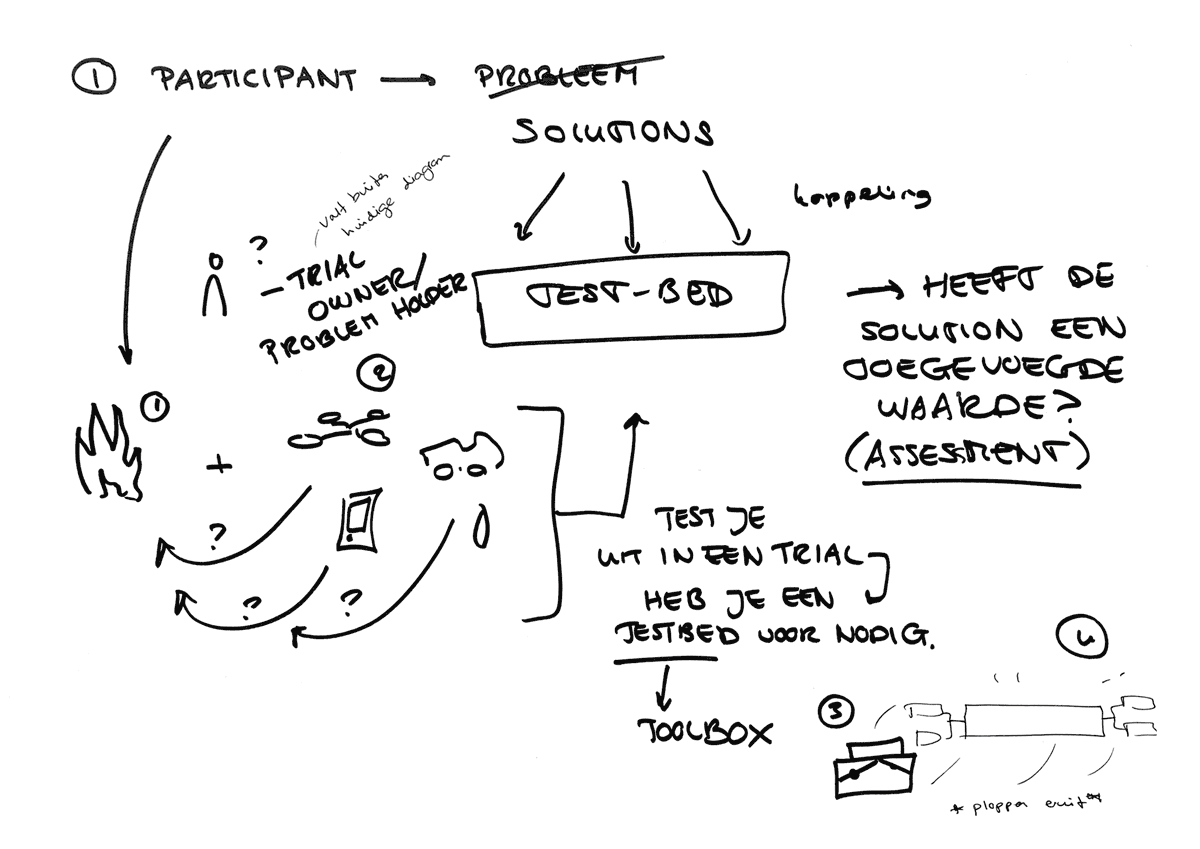 1 PARTICIPANT → PROBLEEM
SOLUTIONS
valt buiten
huidige diagram
koppeling
?
— TRIAL
OWNER/
PROBLEM HOLDER
TEST-BED
→ HEEFT DE
SOLUTION EEN
TOEGEVOEGDE
WAARDE?
(ASSESSMENT)
1
2
+
?
?
?
TEST JE
UIT IN EEN TRIAL
HEB JE EEN
TESTBED VOOR NODIG.
TOOLBOX
3
4
* ploppen eruit *